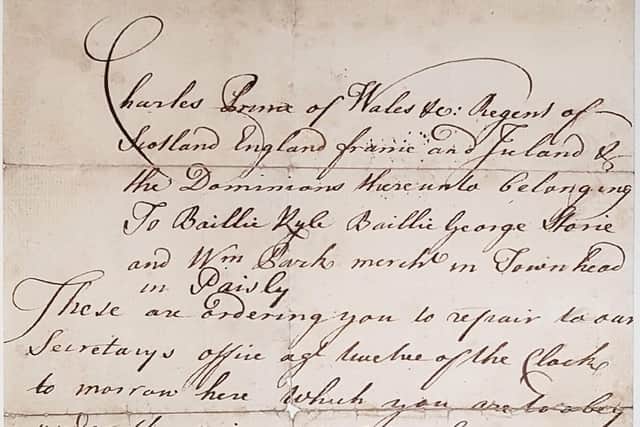 Charles Prince of Wales &c: Regent of
Scotland England france and Ireland &
the Dominions thereunto belonging
To Baillie Kyle Baillie George Storie
and Wm Park mercht in Townhead
in Paisly
These are ordering you to repair to our
Secretarys office agt twelve of the Clock
to morrow here which you are to obey